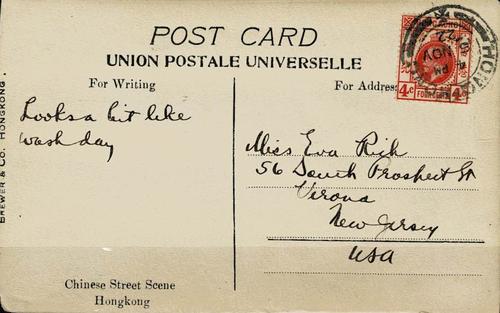 POST CARD
UNION POSTALE UNIVERSELLE
For Writing
For Address
HONG KONG
PM
NOV
22
4c
FOUR CENTS
4c
Looks a bit like
wash day
Miss Eva Rik
56 South Prospect St
Verona
New Jersey
USA
BREWER & CO. HONGKONG.
Chinese Street Scene
Hongkong